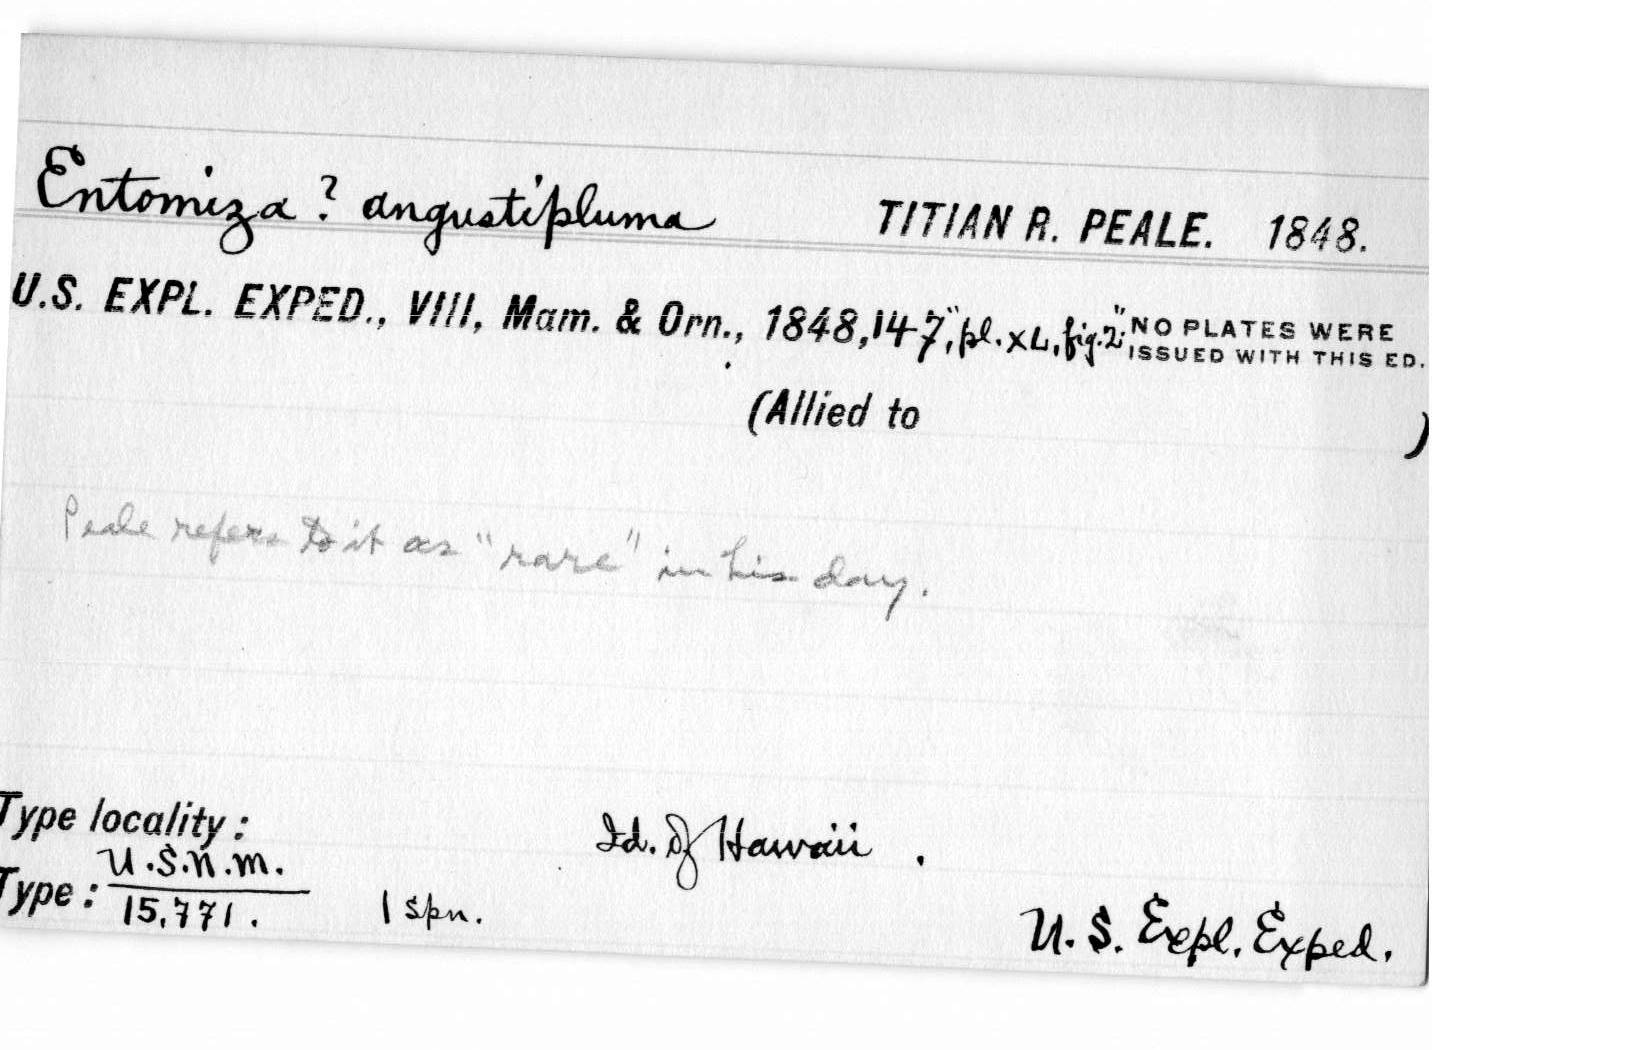 Entomiza ? angustipluma TITIAN R. PEALE. 1848.
U.S. EXPL. EXPED., VIII, Mam. & Orn., 1848, 147, "pl. XL, fig. 2". NO PLATES WERE
ISSUED WITH THIS ED.
(Allied to )
Peale refers to it as "rare" in his day.
Type locality: Id. of Hawaii .
Type: U.S.N.M.
15,771. 1 spn. U. S. Expl. Exped.